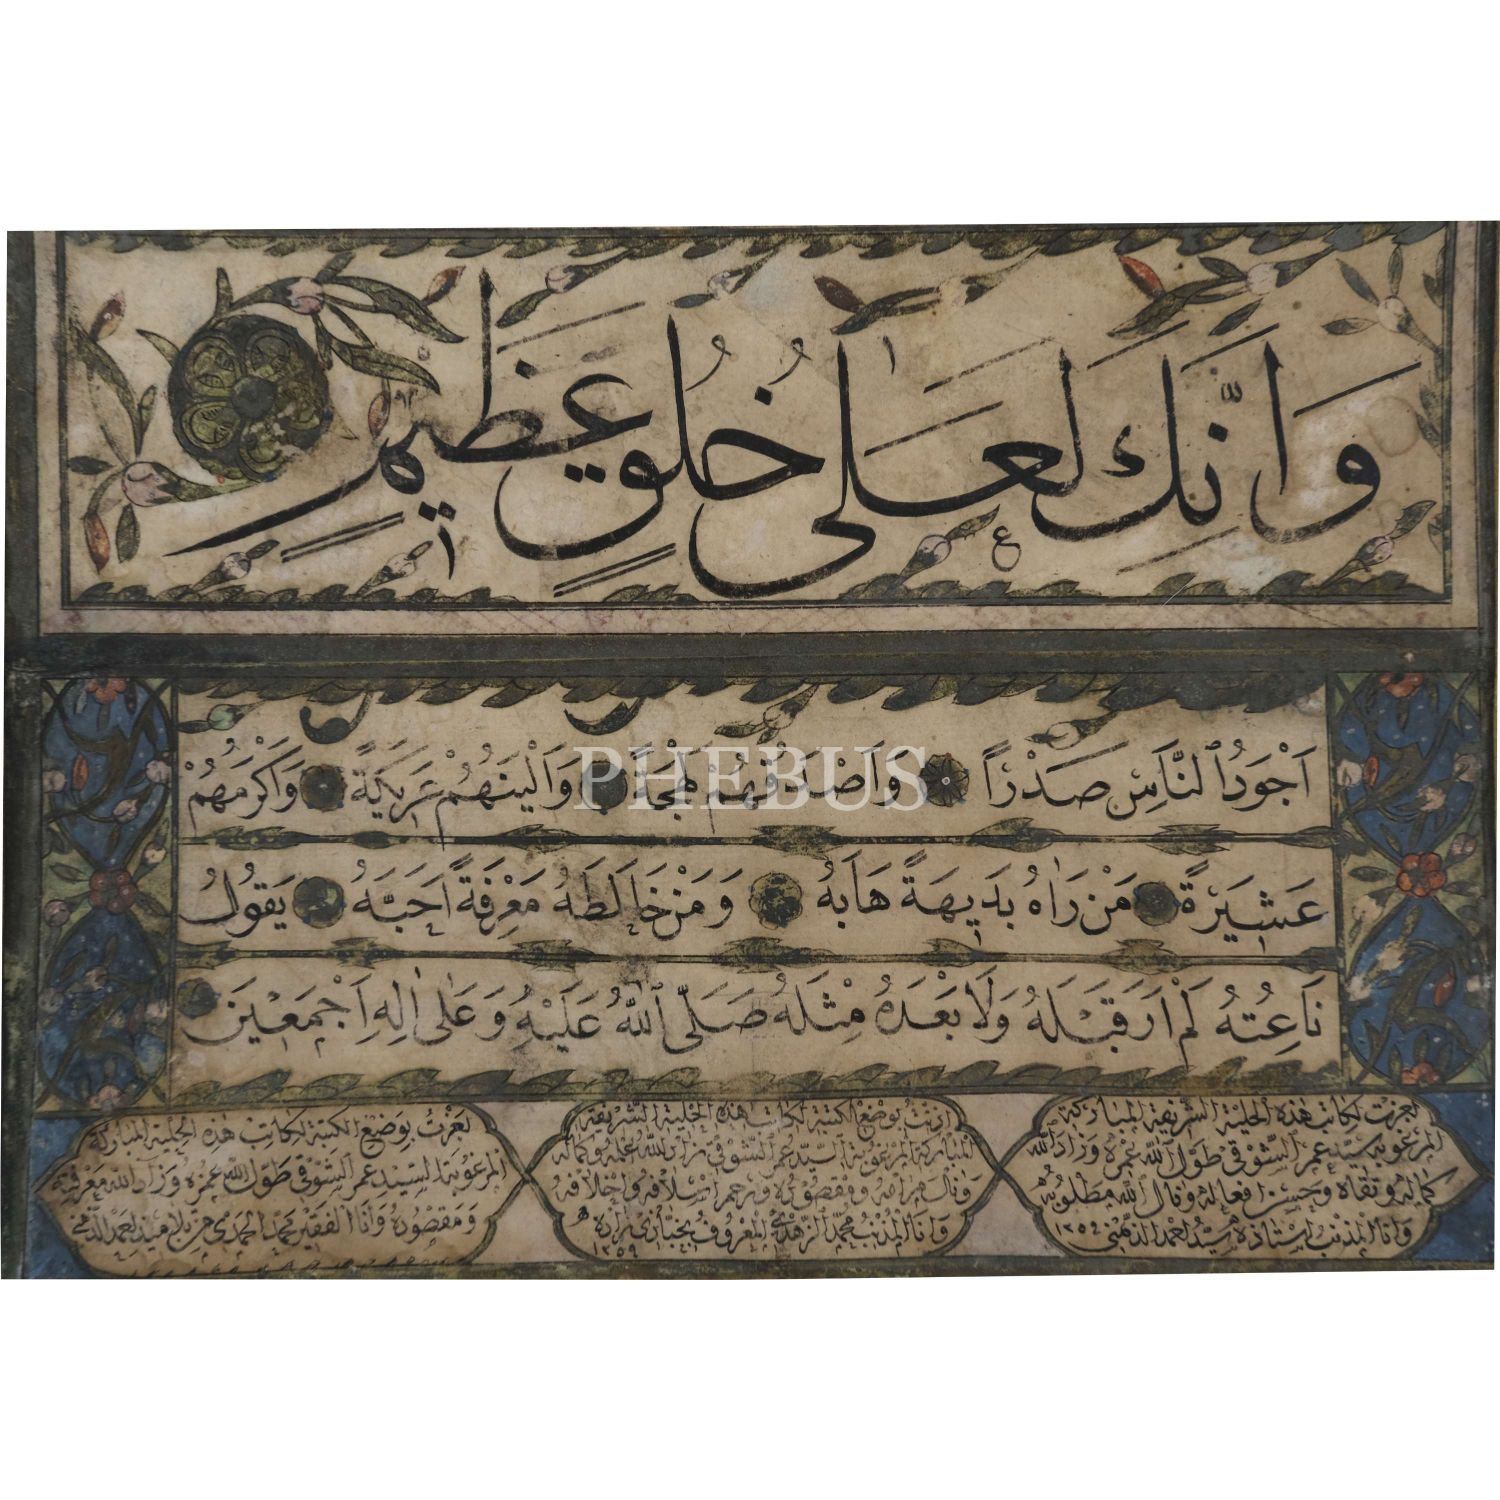 وَإِنَّكَ لَعَلَى خُلُقٍ عَظِيمٍ
PHEBUS
اَجْوَدُ النَّاسِ صَدْرًا وَاَصْدَقُهُمْ لَهْجَةً وَاَلْيَنُهُمْ عَرِيكَةً وَاَكْرَمُهُمْ
عَشِيرَةً مَنْ رَاٰهُ بَدِيهَةً هَابَهُ وَمَنْ خَالَطَهُ مَعْرِفَةً اَحَبَّهُ يَقُولُ
نَاعِتُهُ لَمْ اَرَ قَبْلَهُ وَلَا بَعْدَهُ مِثْلَهُ صَلَّى اللّٰهُ عَلَيْهِ وَعَلٰى اٰلِهِ اَجْمَعِينَ
لكاتب هذه الحلية الشريفة المباركة
المرغوبة سيد عمر الشوقي طول الله عمره وزاد الله
كماله وتقاه وحسن افعاله وانال الله مطلوبه
وانا المذنب استاذه سيد احمد الذهني ١٢٥٩
اذنت بوضع الكتبة لكاتب هذه الحلية الشريفة
المباركة المرغوبة السيد عمر الشوقي زاد الله علمه وكماله
وانال مرامه ومقصوده ورحم اسلافه واخلافه
وانا المذنب محمد الزهدي المعروف
١٢٥٩
بوضع الكتبة لكاتب هذه الحلية المباركة
المرغوبة السيد عمر الشوقي طول الله عمره وزاد الله معرفته
ومقصوده وانا الفقير محمد الحمدي من تلاميذ